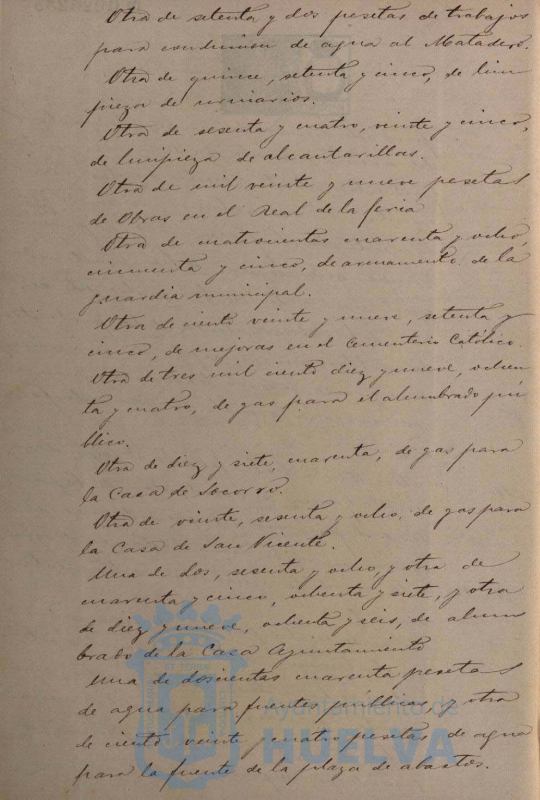 Otra de setenta y dos pesetas de trabajos
para conduccion de agua al Matadero.
Otra de quince, setenta y cinco, de lim
pieza de urinarios.
Otra de sesenta y cuatro, veinte y cinco,
de limpieza de alcantarillas.
Otra de mil veinte y nueve pesetas
de Obras en el Real de la feria
Otra de cuatrocientas cuarenta y ocho,
cincuenta y cinco, de armamento de la
guardia municipal.
Otra de ciento veinte y nueve, setenta y
cinco, de mejoras en el Cementerio Católico.
Otra de tres mil ciento diez y nueve, ochen
ta y cuatro, de gas para el alumbrado pú
blico.
Otra de diez y siete, cuarenta, de gas para
la Casa de Socorro.
Otra de veinte, sesenta y ocho, de gas para
la Casa de San Vicente.
Una de dos, sesenta y ocho, y otra de
cuarenta y cinco, ochenta y siete, y otra
de diez y nueve, ochenta y seis, de alum
brado de la Casa Ayuntamiento
Una de doscientas cuarenta pesetas
de agua para fuentes públicas y otra
de ciento veinte y cuatro pesetas de agua
para la fuente de la plaza de abastos.
Ayuntamiento de
HUELVA